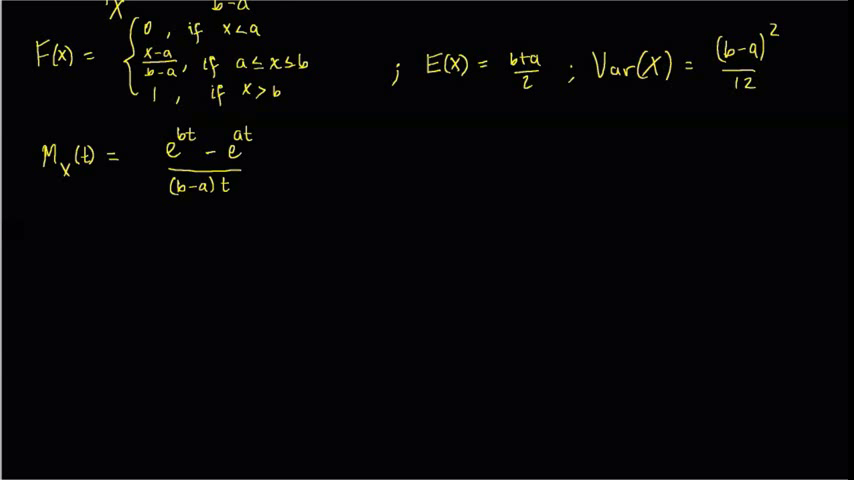 X b-a
F(x) = { 0 , if x<a
x-a/b-a, if a≤x≤b
1 , if x>b
; E(X) = b+a/2 ; Var(X) = (b-a)^2/12
M_X(t) = e^bt - e^at/(b-a)t